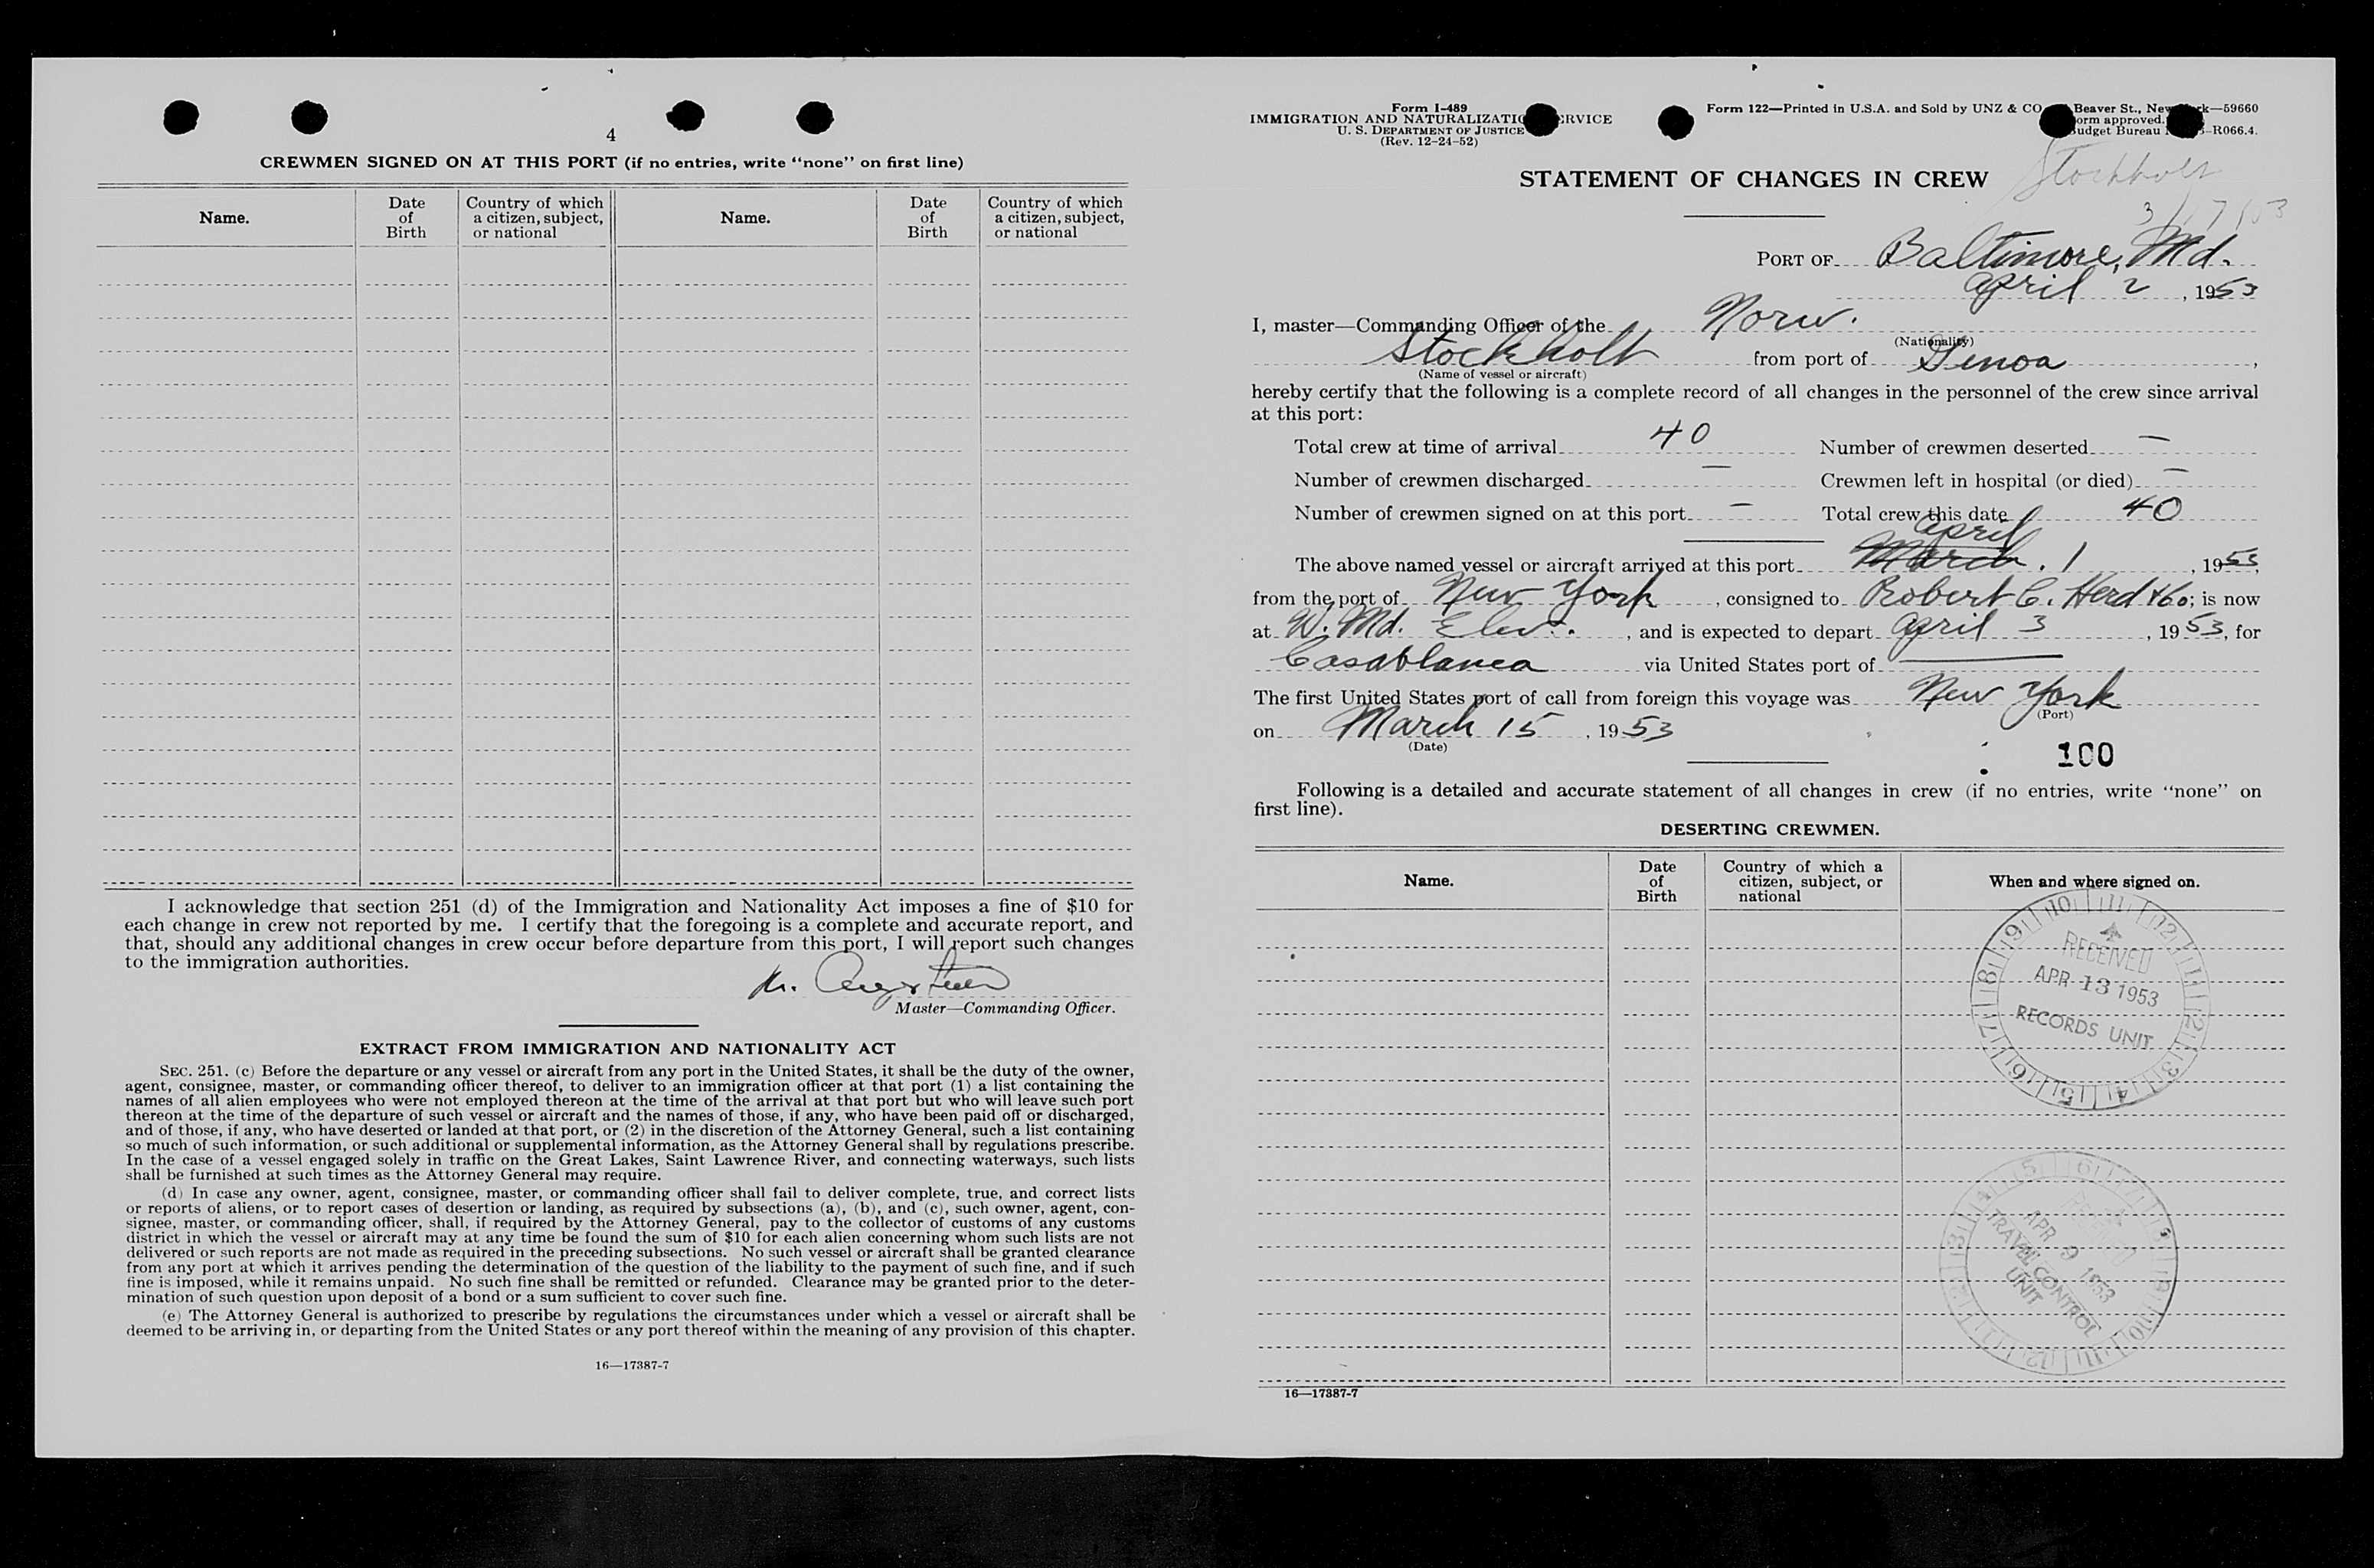 4
CREWMEN SIGNED ON AT THIS PORT (if no entries, write “none” on first line)
Name. Date of Birth Country of which a citizen, subject, or national Name. Date of Birth Country of which a citizen, subject, or national
I acknowledge that section 251 (d) of the Immigration and Nationality Act imposes a fine of $10 for
each change in crew not reported by me. I certify that the foregoing is a complete and accurate report, and
that, should any additional changes in crew occur before departure from this port, I will report such changes
to the immigration authorities.
Master—Commanding Officer.
EXTRACT FROM IMMIGRATION AND NATIONALITY ACT
SEC. 251. (c) Before the departure or any vessel or aircraft from any port in the United States, it shall be the duty of the owner,
agent, consignee, master, or commanding officer thereof, to deliver to an immigration officer at that port (1) a list containing the
names of all alien employees who were not employed thereon at the time of the arrival at that port but who will leave such port
thereon at the time of the departure of such vessel or aircraft and the names of those, if any, who have been paid off or discharged,
and of those, if any, who have deserted or landed at that port, or (2) in the discretion of the Attorney General, such a list containing
so much of such information, or such additional or supplemental information, as the Attorney General shall by regulations prescribe.
In the case of a vessel engaged solely in traffic on the Great Lakes, Saint Lawrence River, and connecting waterways, such lists
shall be furnished at such times as the Attorney General may require.
(d) In case any owner, agent, consignee, master, or commanding officer shall fail to deliver complete, true, and correct lists
or reports of aliens, or to report cases of desertion or landing, as required by subsections (a), (b), and (c), such owner, agent, con-
signee, master, or commanding officer, shall, if required by the Attorney General, pay to the collector of customs of any customs
district in which the vessel or aircraft may at any time be found the sum of $10 for each alien concerning whom such lists are not
delivered or such reports are not made as required in the preceding subsections. No such vessel or aircraft shall be granted clearance
from any port at which it arrives pending the determination of the question of the liability to the payment of such fine, and if such
fine is imposed, while it remains unpaid. No such fine shall be remitted or refunded. Clearance may be granted prior to the deter-
mination of such question upon deposit of a bond or a sum sufficient to cover such fine.
(e) The Attorney General is authorized to prescribe by regulations the circumstances under which a vessel or aircraft shall be
deemed to be arriving in, or departing from the United States or any port thereof within the meaning of any provision of this chapter.
16—17387-7
Form I-489
IMMIGRATION AND NATURALIZATION SERVICE
U. S. DEPARTMENT OF JUSTICE
(Rev. 12-24-52)
Form 122—Printed in U.S.A. and Sold by UNZ & CO Beaver St., New York—59660
Form approved.
Budget Bureau -R066.4.
STATEMENT OF CHANGES IN CREW
Stockholt
PORT OF Baltimore, Md.
April 2, 1953
I, master—Commanding Officer of the Norw.
(Nationality)
Stockholt from port of Genoa,
(Name of vessel or aircraft)
hereby certify that the following is a complete record of all changes in the personnel of the crew since arrival
at this port:
Total crew at time of arrival 40 Number of crewmen deserted —
Number of crewmen discharged — Crewmen left in hospital (or died) —
Number of crewmen signed on at this port — Total crew this date 40
April
The above named vessel or aircraft arrived at this port March. 1, 1953,
from the port of New York, consigned to Robert C. Herd & Co; is now
at W. Md. Elev., and is expected to depart April 3, 1953, for
Casablanca via United States port of —
The first United States port of call from foreign this voyage was New York
(Port)
on March 15, 1953
(Date)
100
Following is a detailed and accurate statement of all changes in crew (if no entries, write “none” on
first line).
DESERTING CREWMEN.
Name. Date of Birth Country of which a citizen, subject, or national When and where signed on.
10 11 12 1 2 3 4 5 6 7 8 9
RECEIVED
APR 13 1953
RECORDS UNIT
APR 9 1953
TRAVEL CONTROL
UNIT
16—17387-7